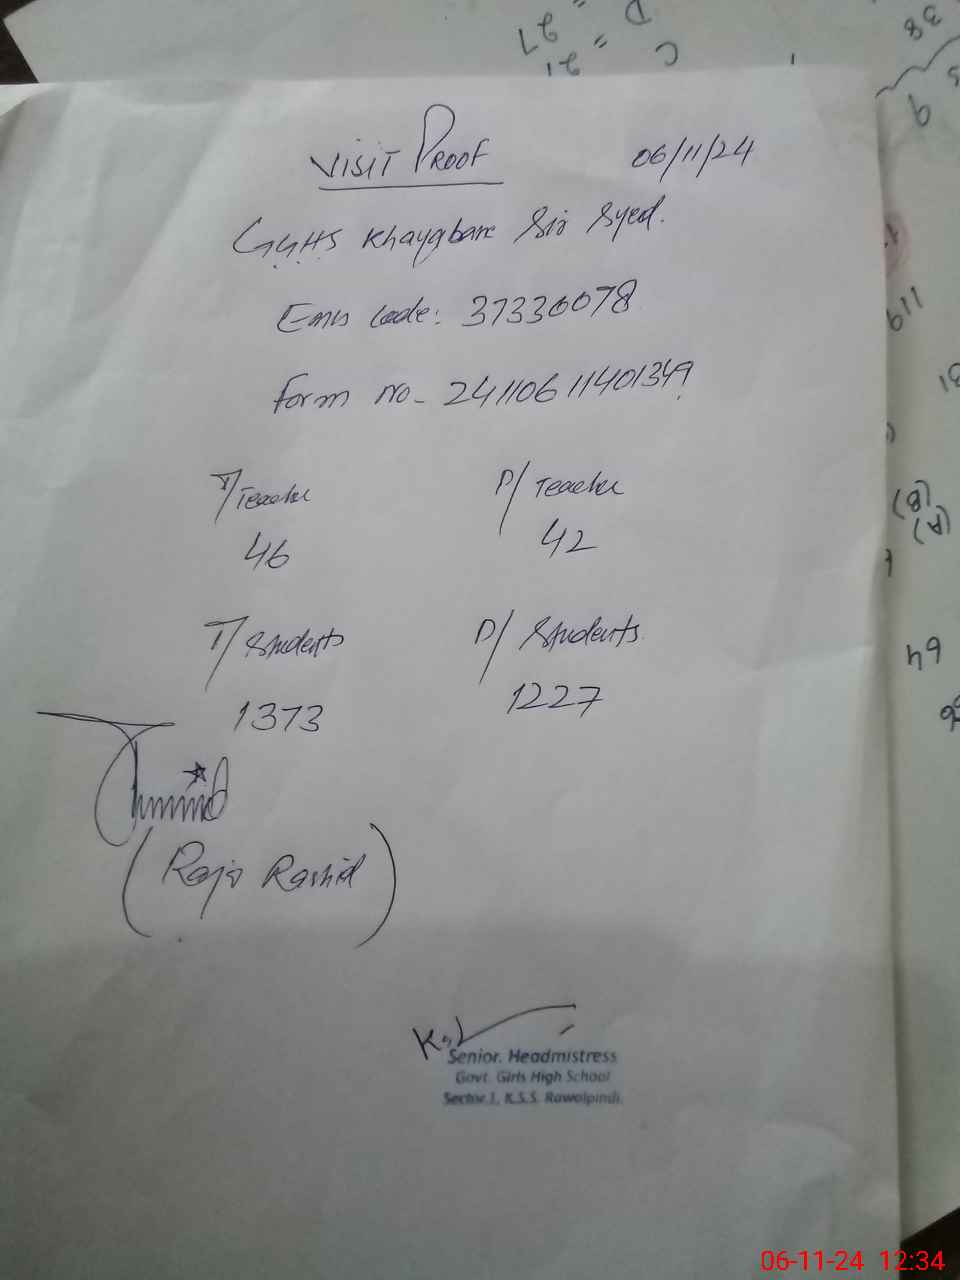 VISIT PROOF 06/11/24
GGHS Khayaban Sir Syed.
Emis Code: 37330078
Form no - 24110611401349
T/Teacher P/Teacher
46 42
T/Students P/Students
1373 1227
(Raja Rashid)
Senior. Headmistress
Govt. Girls High School
Sector I, K.S.S. Rawalpindi
D =
27
C = 21
38
9
119
31
(B)
(A)
64
06-11-24 12:34